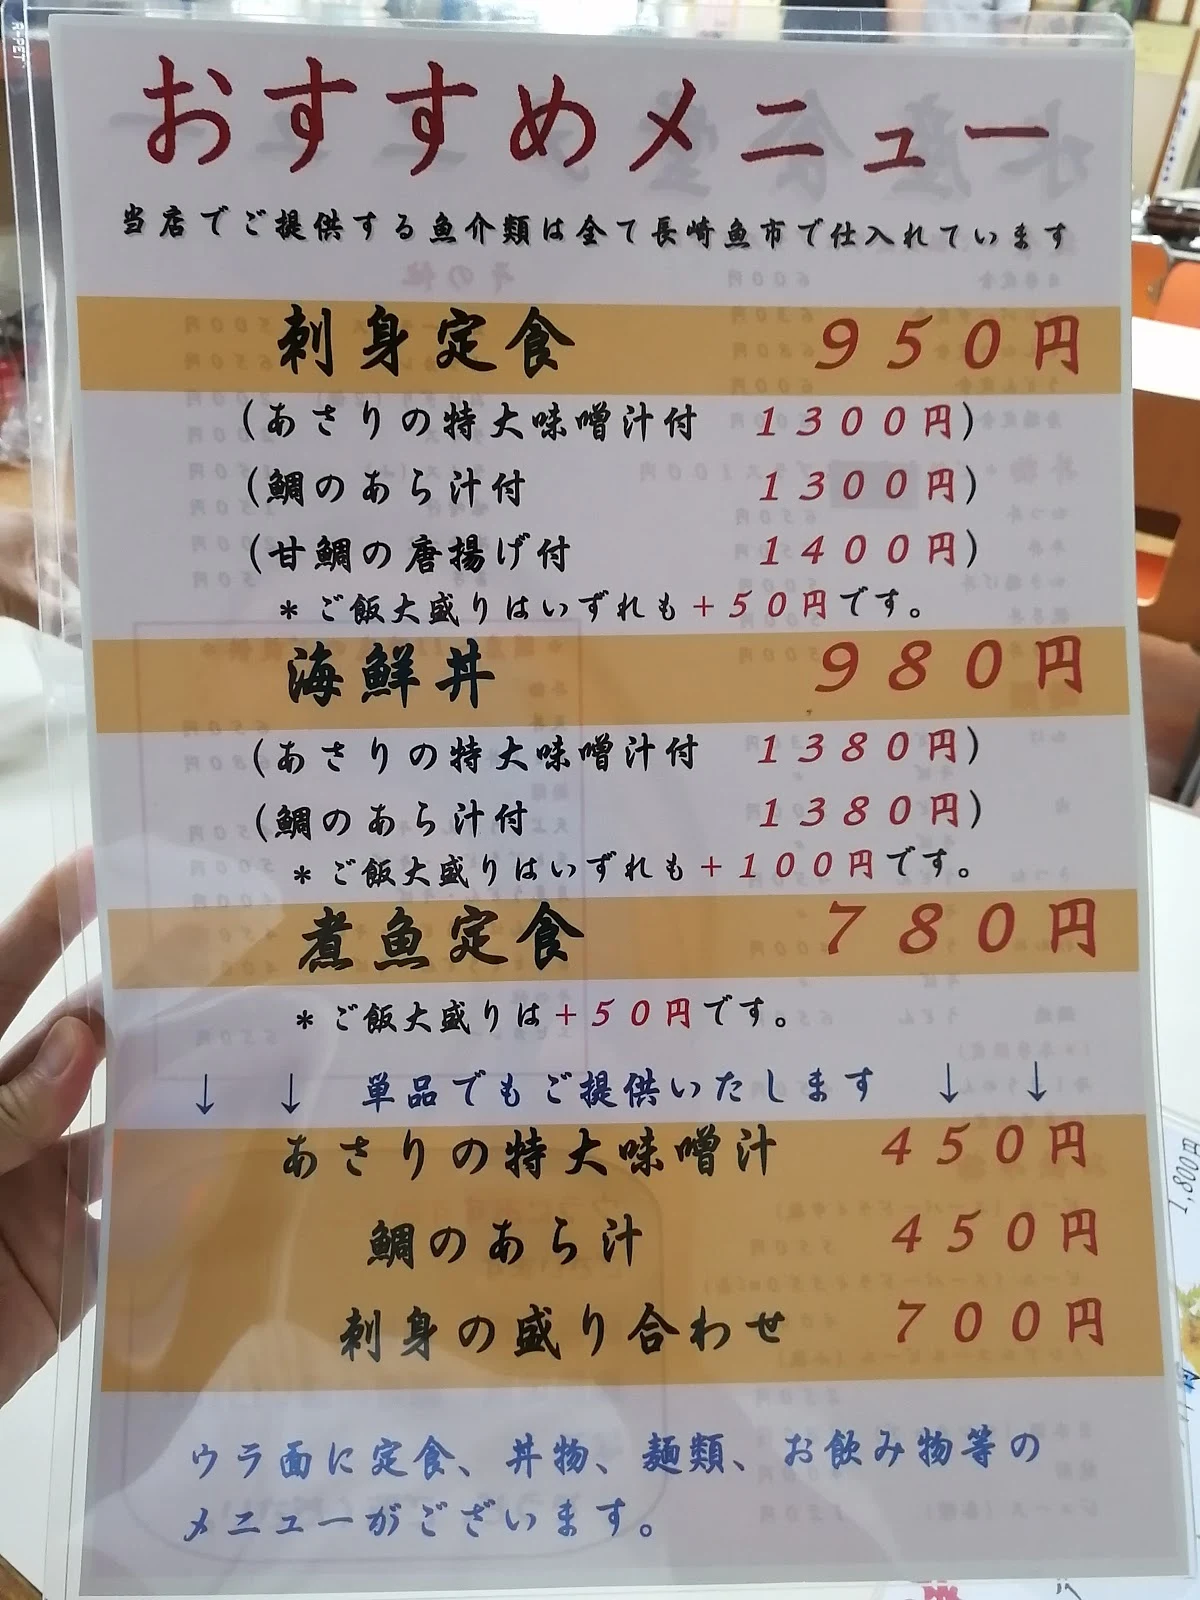 おすすめメニュー
当店でご提供する魚介類は全て長崎魚市で仕入れています
刺身定食 950円
(あさりの特大味噌汁付 1300円)
(鯛のあら汁付 1300円)
(甘鯛の唐揚げ付 1400円)
*ご飯大盛りはいずれも+50円です。
海鮮丼 980円
(あさりの特大味噌汁付 1380円)
(鯛のあら汁付 1380円)
*ご飯大盛りはいずれも+100円です。
煮魚定食 780円
*ご飯大盛りは+50円です。
↓ ↓ 単品でもご提供いたします ↓ ↓
あさりの特大味噌汁 450円
鯛のあら汁 450円
刺身の盛り合わせ 700円
ウラ面に定食、丼物、麺類、お飲み物等の
メニューがございます。
R-PET
1,800円